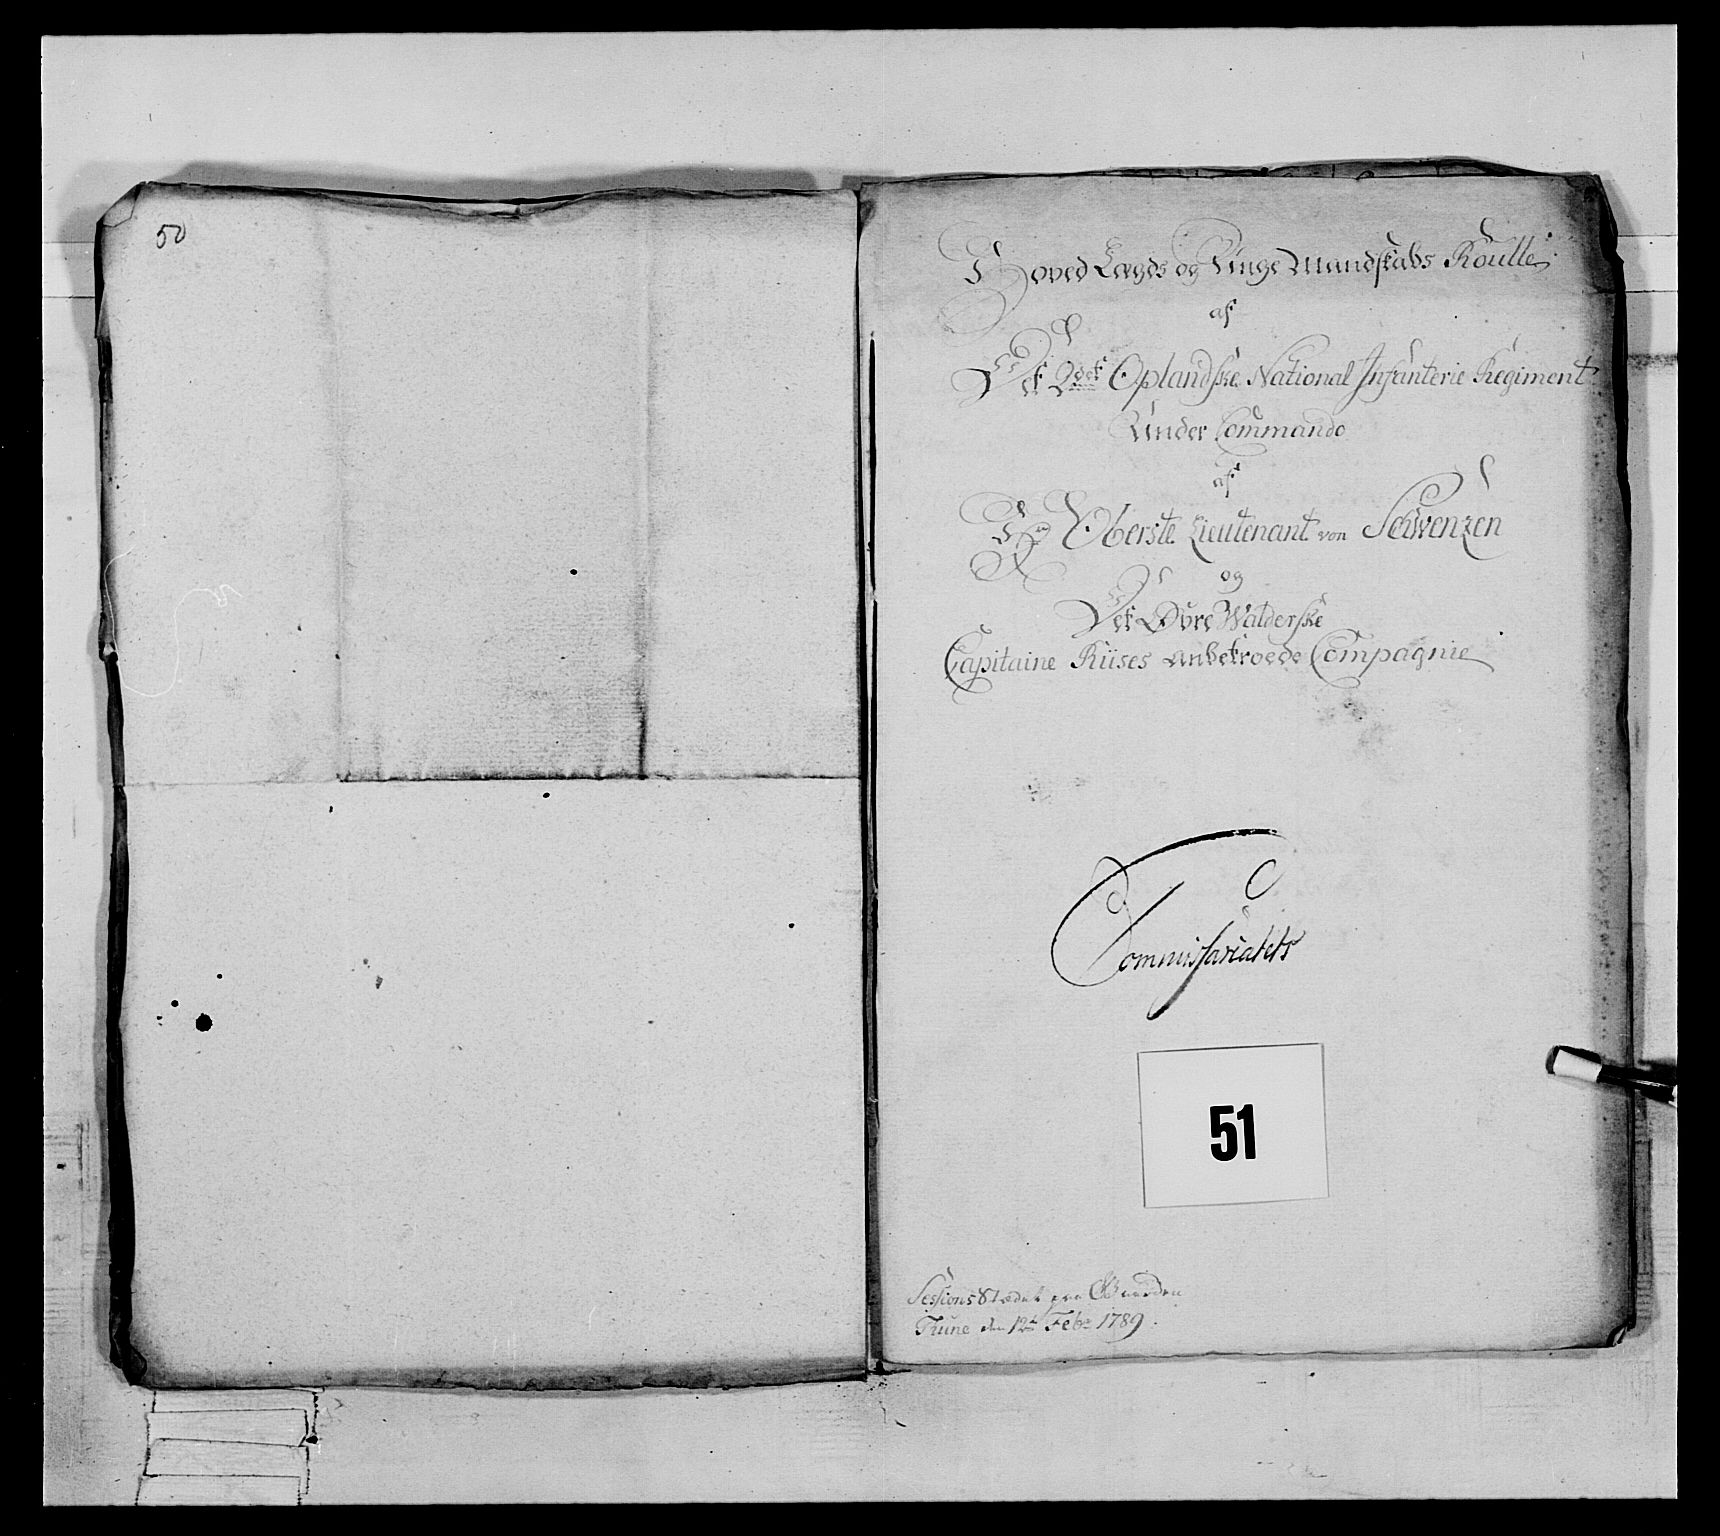 50
Hoved Lægds og Unge Mandskabs Roulle
af
Det 2det Oplandske National Infanterie Regiment
Under Commando
af
Hr Oberste Lieutenant von Schwenzen
og
Det Øvre Walderske
Capitaine Riises anbetroede Compagnie
Commissariatets
51
Sessions Stædet paa Gaarden
Fune den 12te Febr 1789.